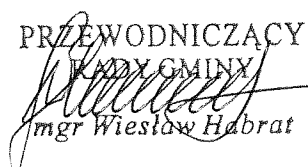 PRZEWODNICZĄCY
RADY GMINY
mgr Wiesław Habrat